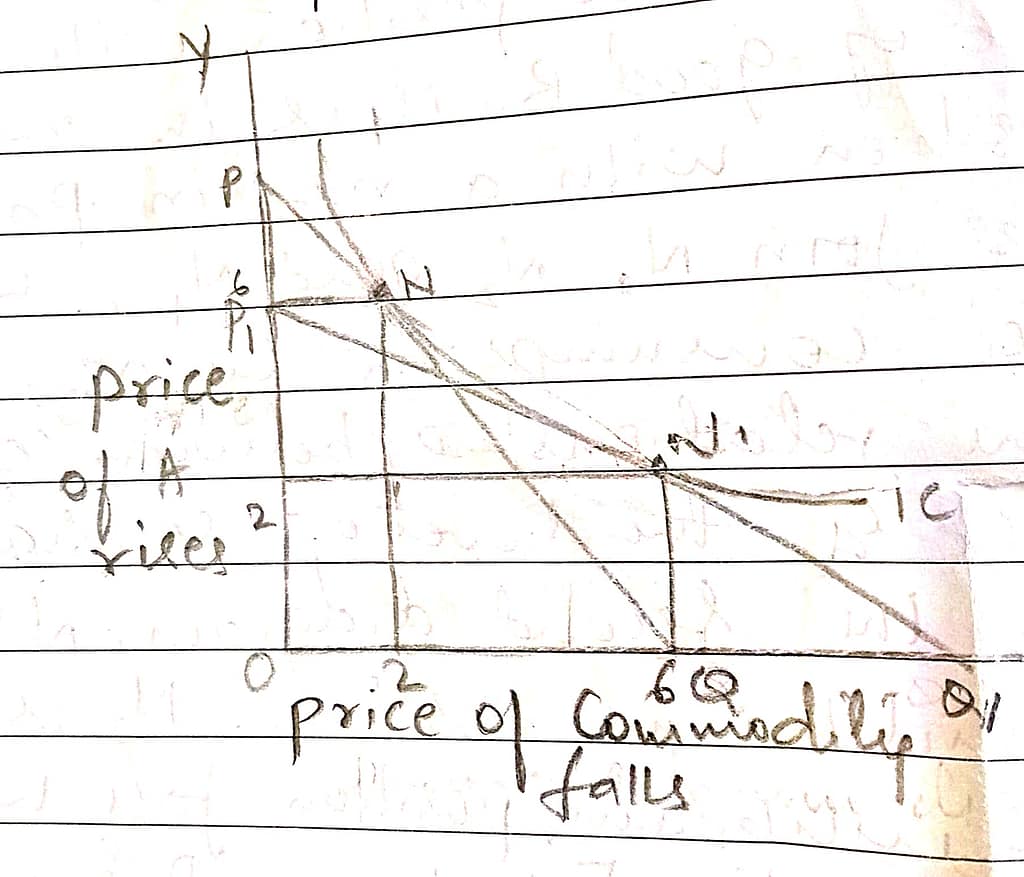 Y
P
6
N
P1
price
of A
rises
N1
2
IC
0
2
6 Q
Q1
price of Commodity
falls